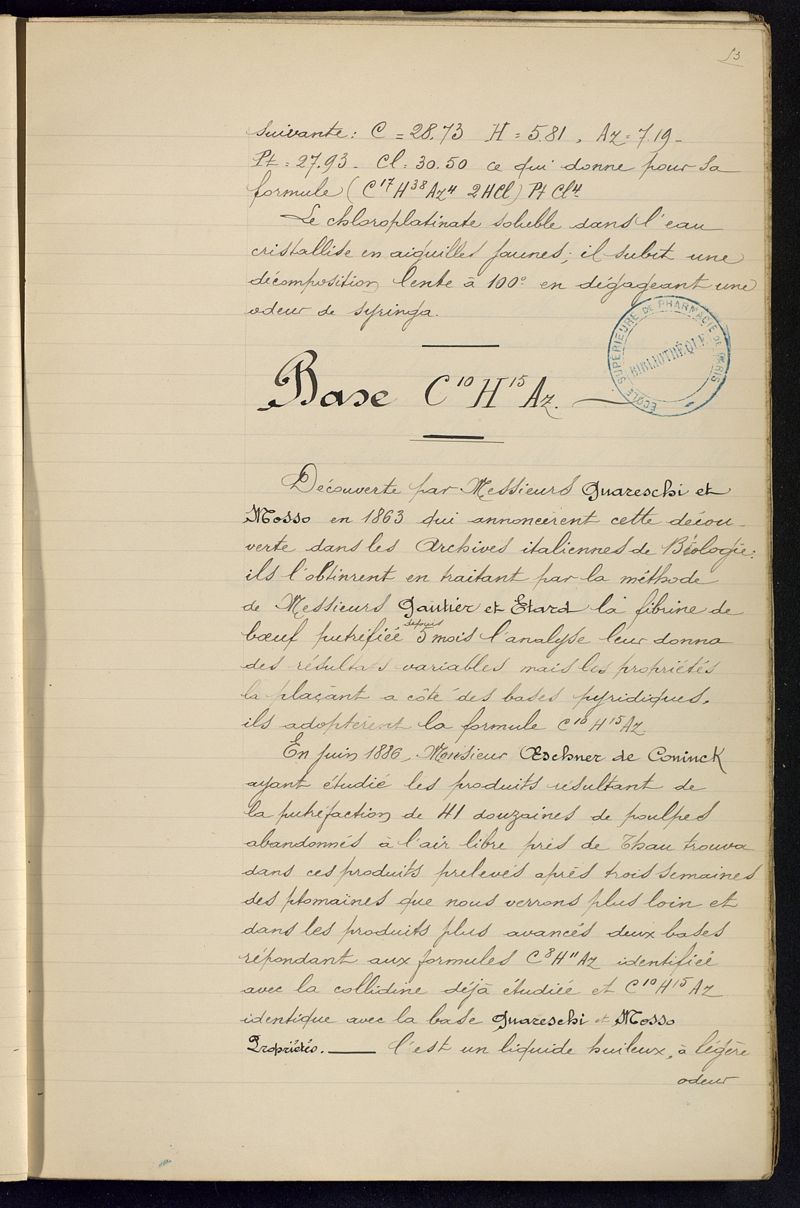 53
suivante: C = 28.73 H = 5.81, Az = 7.19 -
Pt = 27.93 - Cl = 30.50 ce qui donne pour sa
formule (C¹⁷H³⁸Az⁴ 2HCl) Pt Cl⁴
Le chloroplatinate soluble dans l'eau
cristallise en aiguilles jaunes; il subit une
décomposition lente à 100° en dégageant une
odeur de syringa.
ÉCOLE SUPÉRIEURE DE PHARMACIE DE PARIS
BIBLIOTHÈQUE
Base C¹⁰H¹⁵Az.
Découverte par Messieurs Guareschi et
Mosso en 1863 qui annoncèrent cette décou-
verte dans les Archives italiennes de Biologie:
ils l'obtinrent en traitant par la méthode
de Messieurs Gautier et Etard la fibrine de
bœuf putréfiée depuis 5 mois l'analyse leur donna
des résultats variables mais les propriétés
la plaçant a côté des bases pyridiques,
ils adoptèrent la formule C¹⁰H¹⁵Az
En Juin 1886, Monsieur Œschner de Coninck
ayant étudié les produits résultant de
la putréfaction de 41 douzaines de poulpes
abandonnés à l'air libre près de Thau trouva
dans ces produits prelevés après trois semaines
des ptomaïnes que nous verrons plus loin et
dans les produits plus avancés deux bases
répondant aux formules C⁸H¹¹Az identifiée
avec la collidine déjà étudiée et C¹⁰H¹⁵Az
identique avec la base Guareschi et Mosso
Propriétés. — C'est un liquide huileux, à légère
odeur